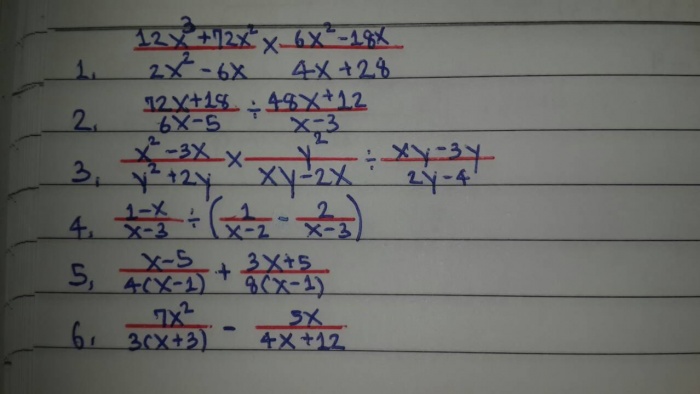 1. (12x³+72x²)/(2x²-6x) × (6x²-18x)/(4x+28)
2. (72x+18)/(6x-5) ÷ (48x+12)/(x-3)
3. (x²-3x)/(y²+2y) × y²/(xy-2x) ÷ (xy-3y)/(2y-4)
4. (1-x)/(x-3) ÷ (1/(x-2) - 2/(x-3))
5. (x-5)/(4(x-1)) + (3x+5)/(8(x-1))
6. 7x²/(3(x+3)) - 5x/(4x+12)